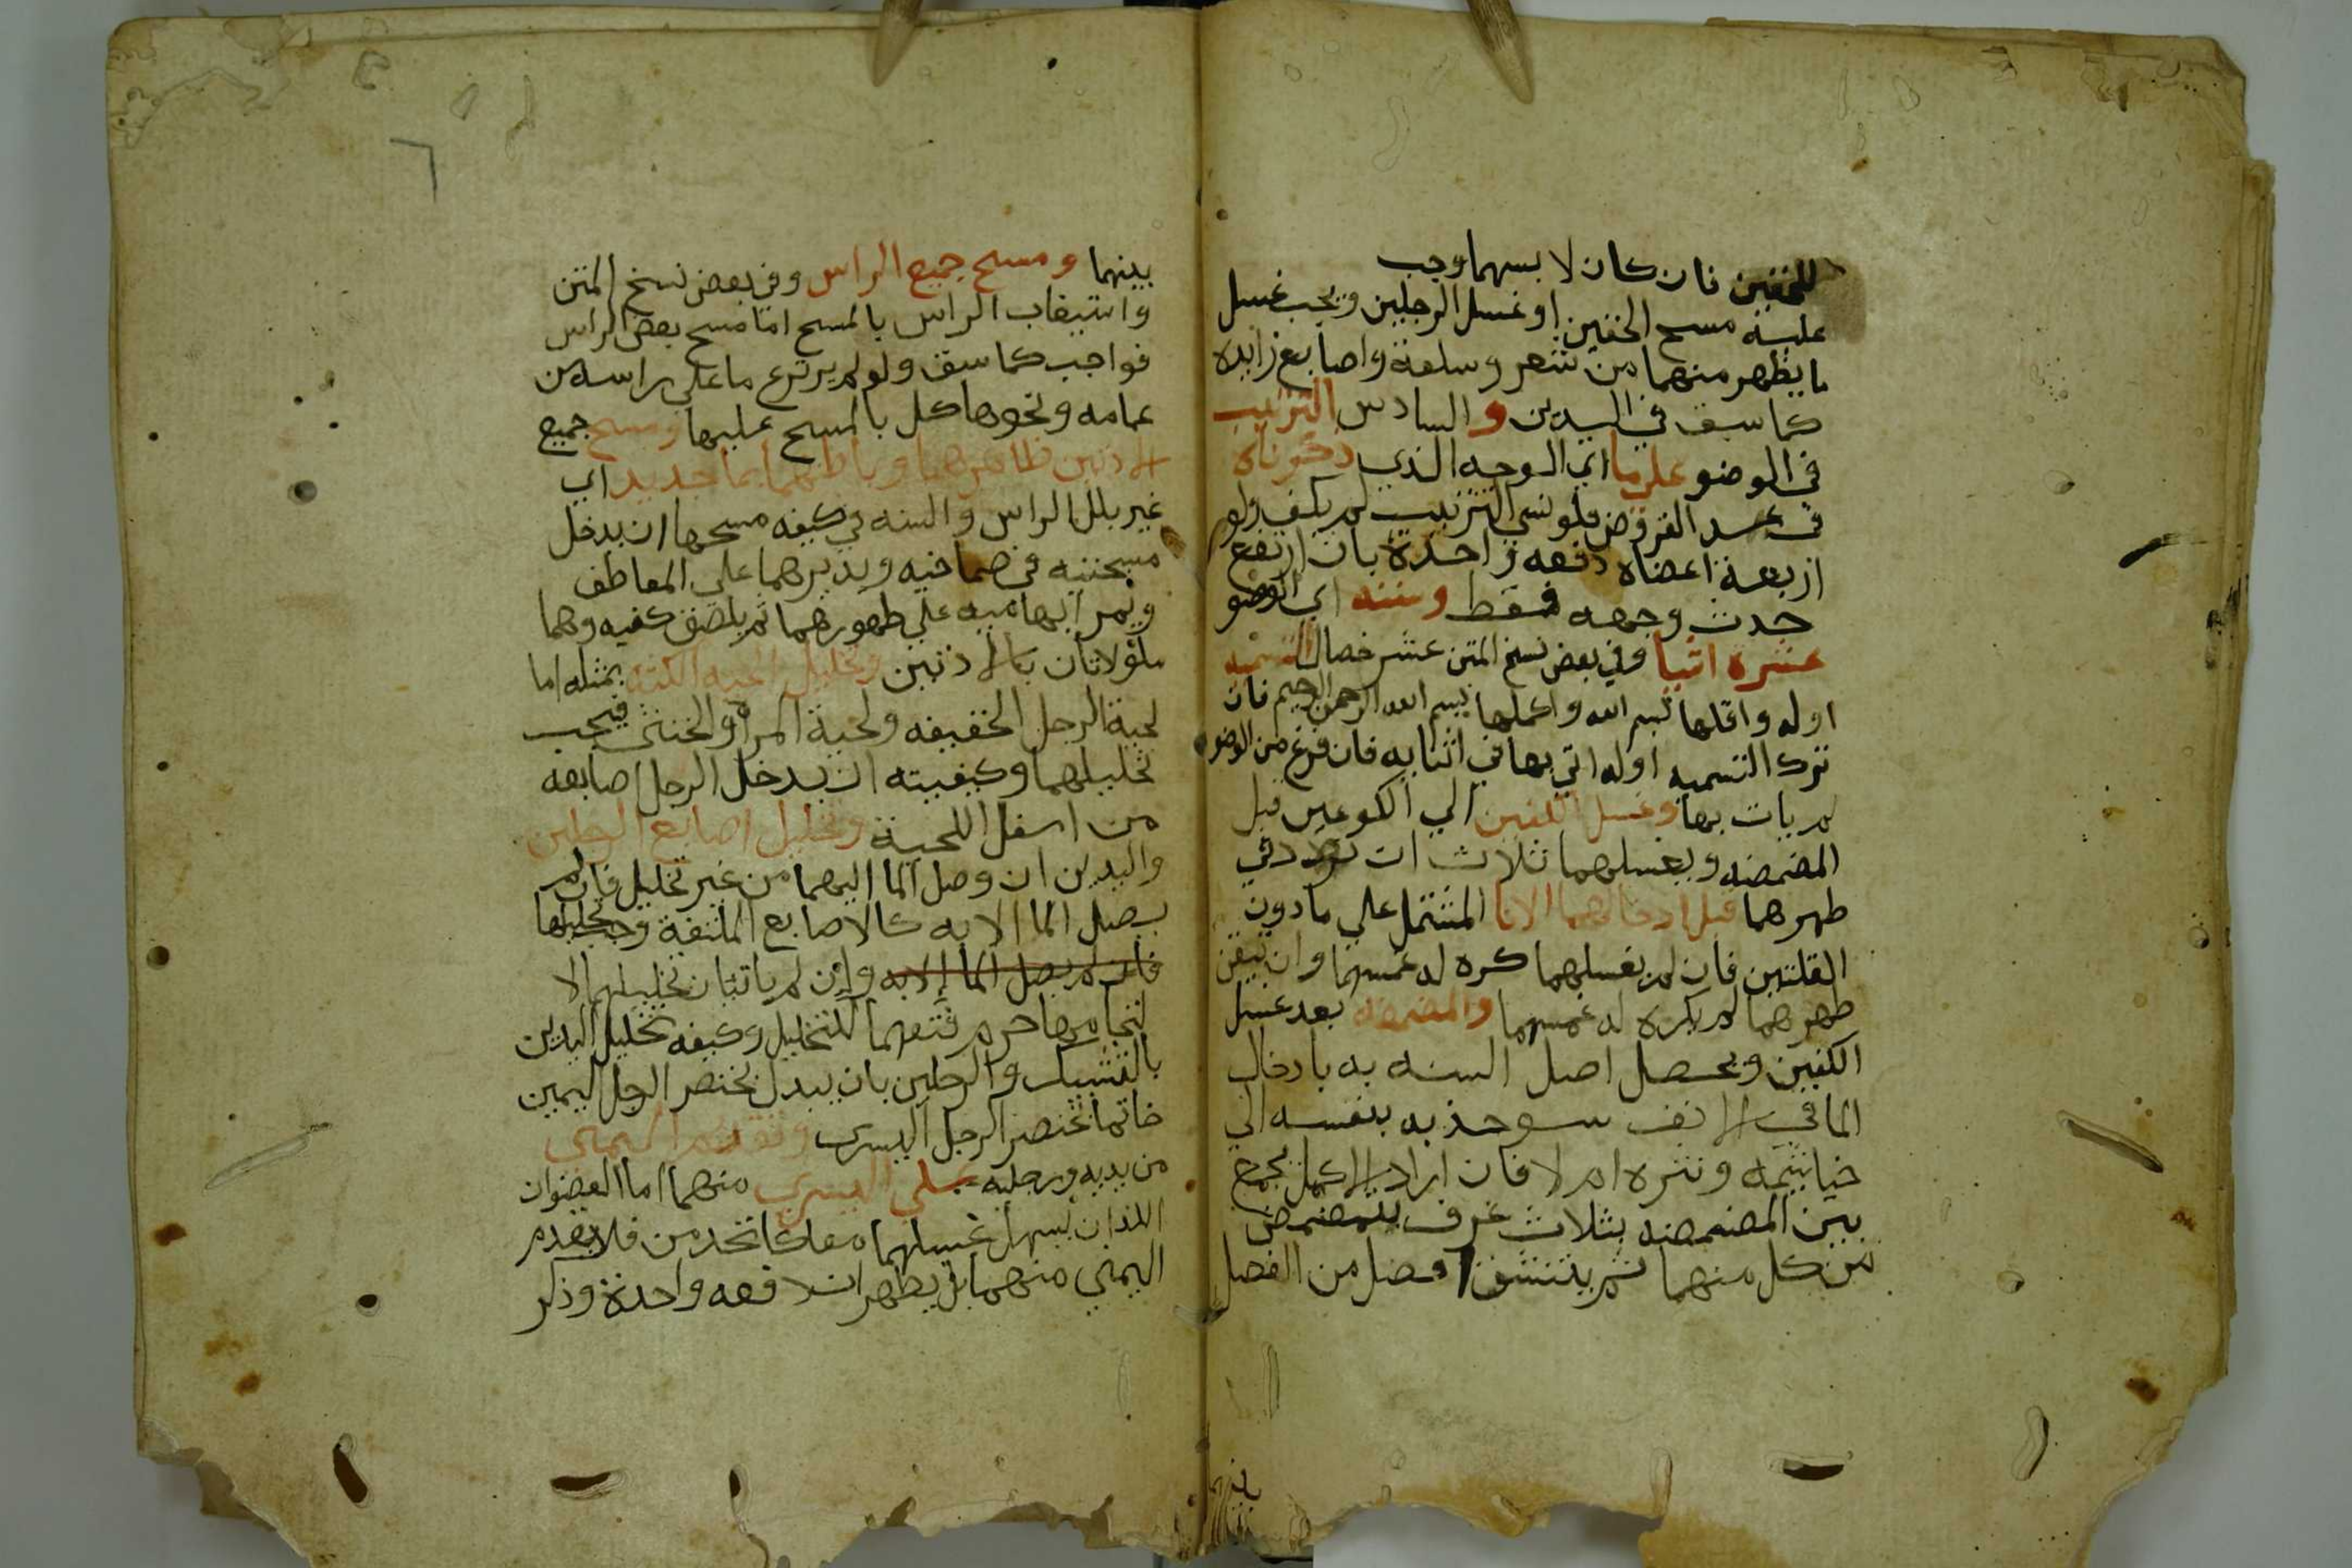 للخفين فان كان لا بسهما وجب
عليه مسح الخفين او غسل الرجلين ويجب غسل
ما يظهر منهما من شعر وسلعة واصابع زايده
كما سبق في اليدين والسادس الترتيب
في الوضو علي ما اي الوجه الذي ذكرناه
في عد الفروض فلو نسي الترتيب لم يكف ولو
اربعة اعضاه دفعه واحدة بان ارتفع
حدث وجهه فقط وسننه اي الوضو
عشرة اشيا وفي بعض نسخ المتن عشر خصال التسميه
اوله واقلها بسم الله واكملها بسم الله الرحمن الرحيم فان
ترك التسميه اوله اتي بها في اثنايه فان فرغ من الوضو
لم يات بها وغسل الكفين الي الكوعين قبل
المضمضه ويغسلهما ثلاث ان تردد في
طهرهما قبل ادخالهما الانا المشتمل علي ما دون
القلتين فان لم يغسلهما كره له غمسهما وان تيقن
طهرهما لم يكره له غمسهما والمضمضه بعد غسل
الكفين ويحصل اصل السنه به بادخال
الما في الانف سو جذبه بنفسه الي
خياشيمه ونثره ام لا فان اراد الاكمل بجمع
بين المضمضه بثلاث غرف يتمضمض
من كل منهما ثم يستنشق افضل من الفصل
بينهما
٦
بينهما ومسح جميع الراس وفي بعض نسخ المتن
واستيعاب الراس بالمسح اما مسح بعض الراس
فواجب كما سبق ولو لم يرد نزع ما علي راسه من
عمامه ونحوها كمل بالمسح عليها ومسح جميع
الاذنين ظاهرهما وباطنهما بما جديد اي
غير بلل الراس والسنه في كيفه مسحها ان يدخل
مسبحتيه في صماخيه ويديرهما علي المعاطف
ويمر ابهاميه علي ظهورهما ثم يلصق كفيه وهما
ملولاتان بالاذنين وتخليل اللحيه الكثه بمثله اما
لحية الرجل الخفيفه ولحية المراة والخنثي فيجب
تخليلهما وكيفيته ان يدخل الرجل اصابعه
من اسفل اللحية وتخليل اصابع الرجلين
واليدين ان وصل الما اليهما من غير تخليل فان لم
يصل الما الا به كالاصابع الملتفة وجب تخليلها
فان لم يصل الما الا به وان لم ياتتان تخليلهما لا
لتحامها حرم فتقهما للتخليل وكيفه تخليل اليدين
بالتشبيك والرجلين بان يبدل بخنصر الرجل اليمين
خاتما بخنصر الرجل اليسري وتقديم اليمني
من يديه ورجليه علي اليسري منهما اما العضوان
اللذان يسهل غسلهما معا كالخدين فلا يقدم
اليمني منهما بل يطهران دفعه واحدة وذكر